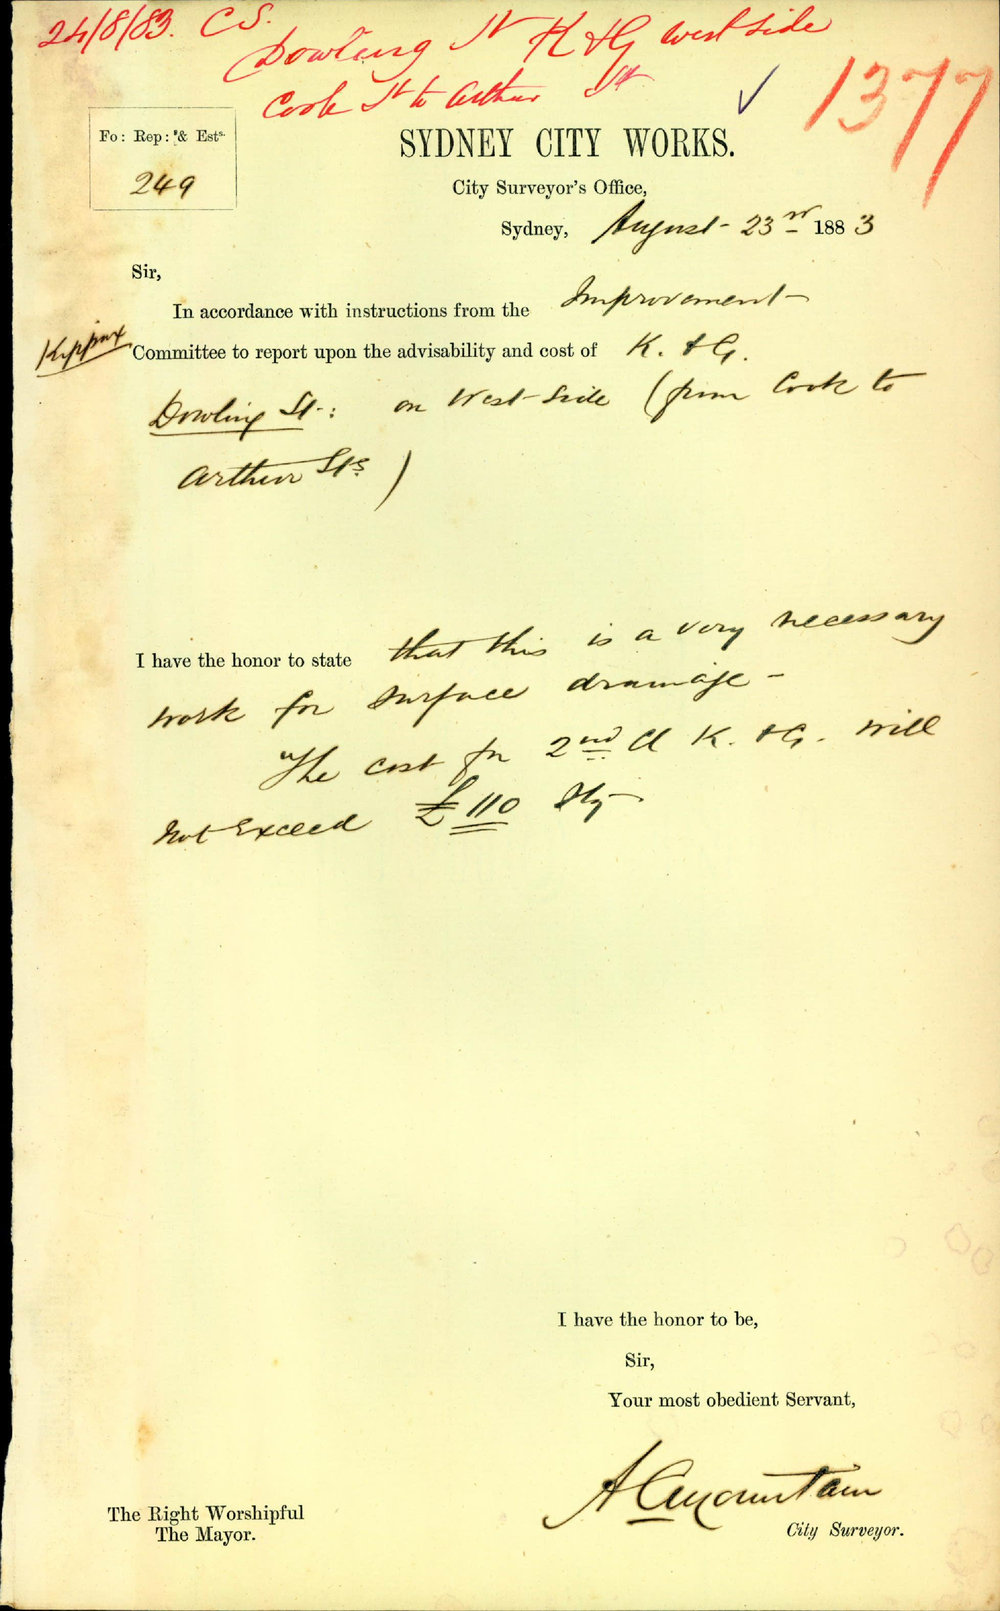 24/8/83. C S.
Dowling St K & G west side
Cook St to Arthur St
1377
Fo: Rep: & Ests.
249
SYDNEY CITY WORKS.
City Surveyor's Office,
Sydney, August 23rd 1883
Sir,
In accordance with instructions from the Improvement
Kippax
Committee to report upon the advisability and cost of K. & G.
Dowling St: on West Side (from Cook to
Arthur Sts)
I have the honor to state that this is a very necessary
work for surface drainage -
The cost for 2nd Cl K. & G. will
not Exceed £110 Stg
I have the honor to be,
Sir,
Your most obedient Servant,
A C Mountain
City Surveyor.
The Right Worshipful
The Mayor.